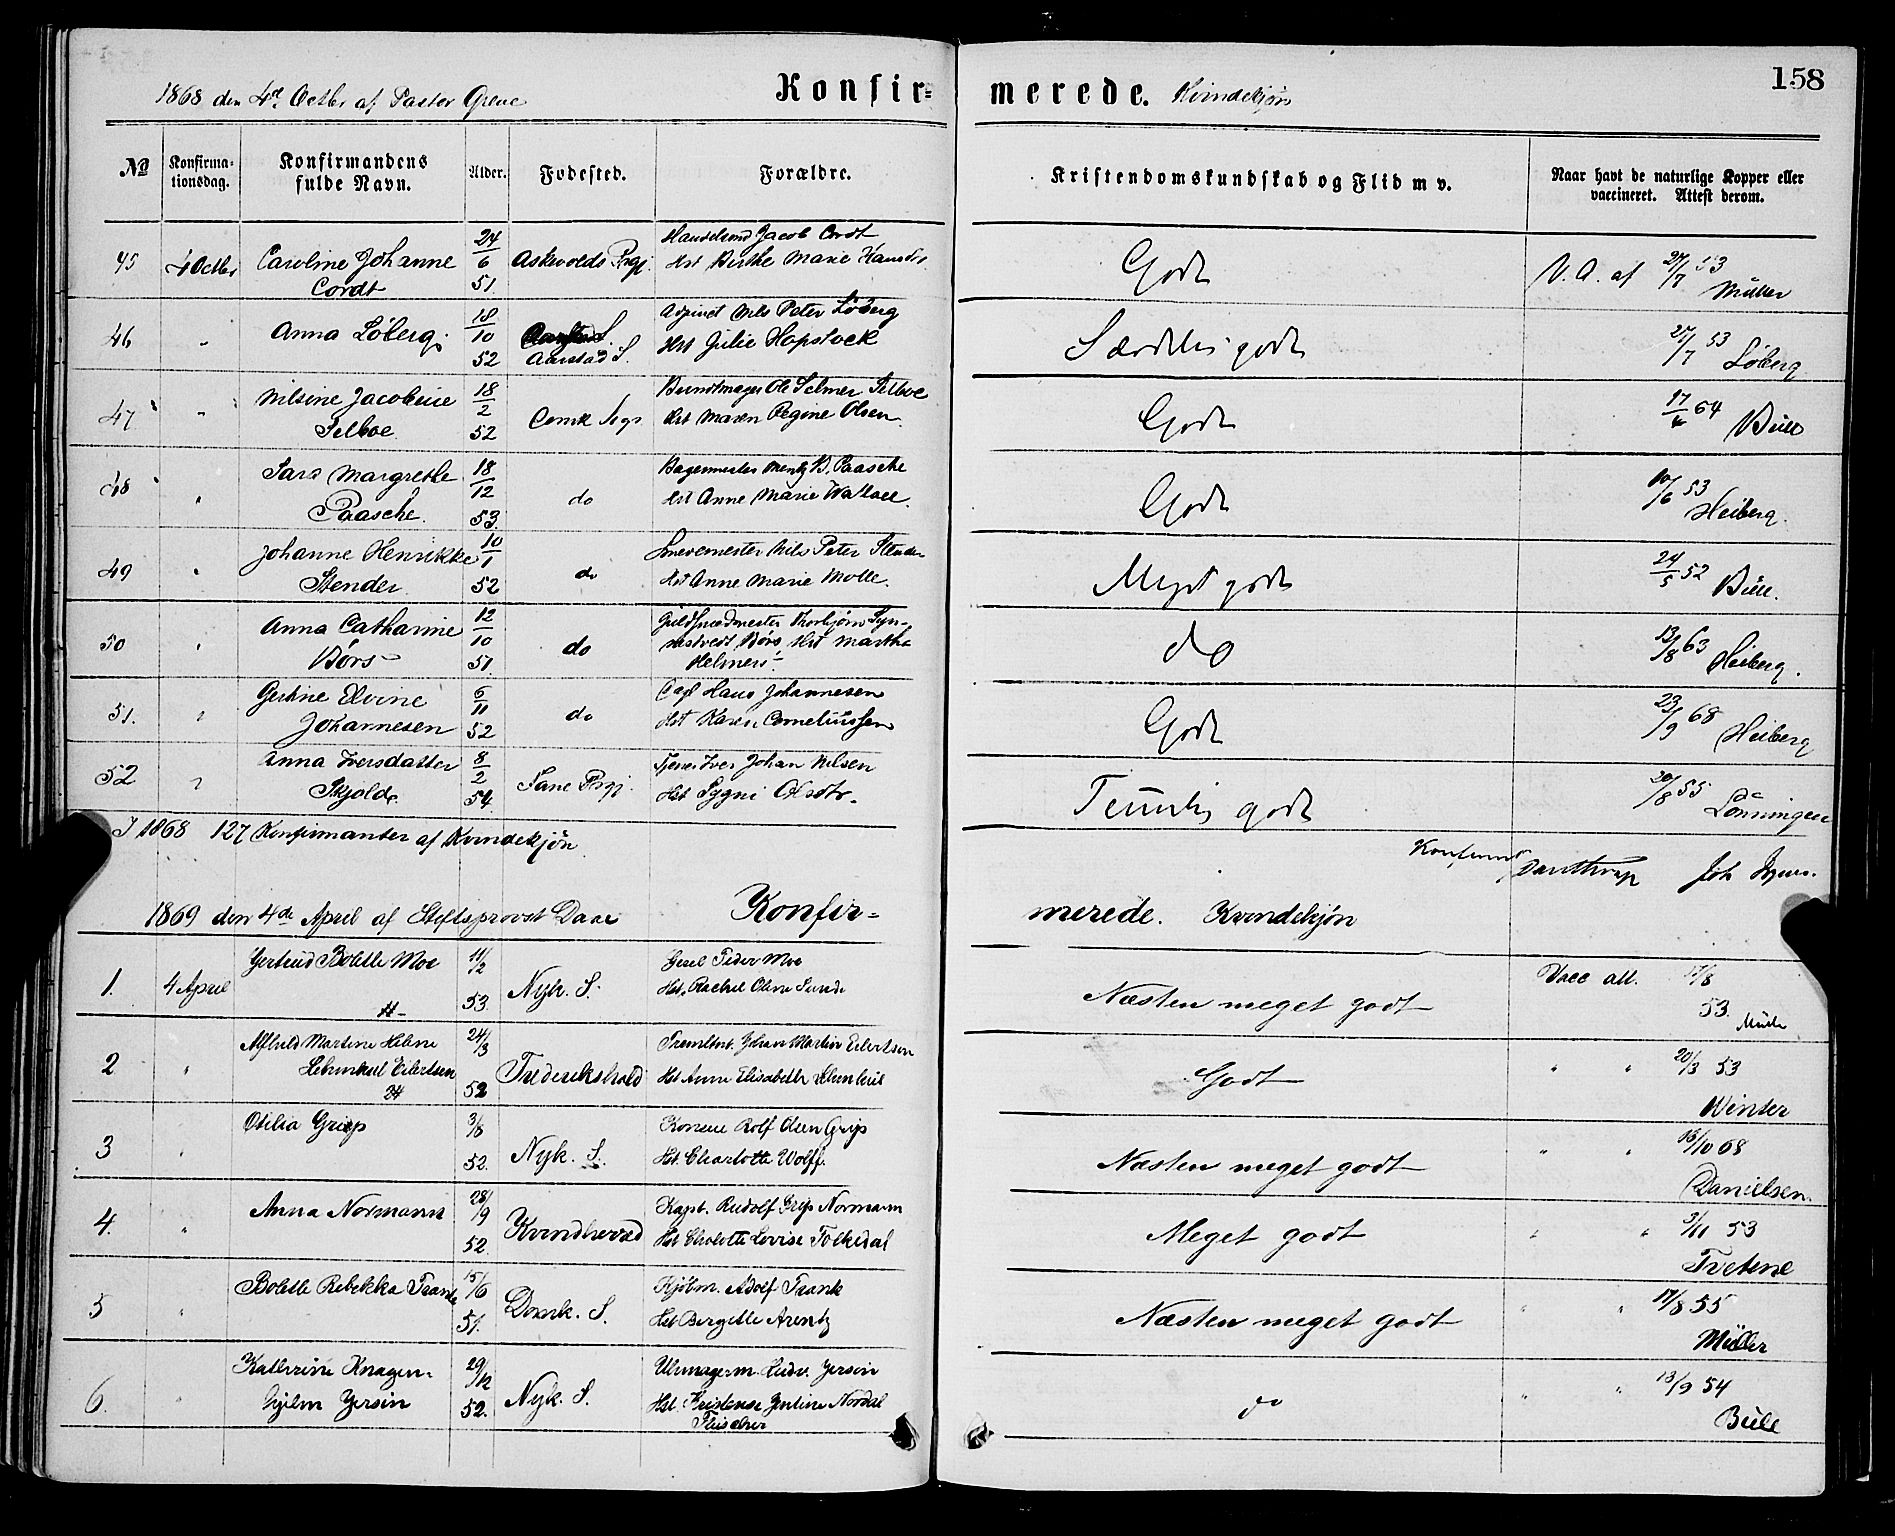 158
1868 den 4de Octbr af Pastor Greve Konfir= merede. Kvindekjøn
No Konfirma-tionsdag. Konfirmandens fulde Navn. Alder. Fødested. Forældre. Kristendomskundskab og Flid m v. Naar havt de naturlige Kopper eller vaccineret. Attest derom.
45 4 Octbr Caroline Johanne 24/6 51. Askvolds Prgj. Jacob Cordt Godt V. A. af 27/7 53
Cordt Hst Birthe Marie Hansdr. Müller
46 " Anna Løberg. 18/10 52 Aarstad S. Adjunct Nils Peter Løberg Særdeles godt 27/7 53
Hst Julie Hopstock Løberg
47 " Nilsine Jacobine 18/2 52 Domk Sogn Buntmager Ole Selmer Selboe Godt 17/4 64 Bull
Selboe Hst Maren Regine Olsen
48 " Sara Margrethe 18/12 53. do Bagermester Mentz B. Paasche Godt 10/6 53
Paasche. Hst Anne Marie Wallace. Heiberg.
49 " Johanne Henrikke 10/1 52 do Nils Peter Stender Meget godt 24/5 52 Bull.
Stender Hst Anne Marie Molle.
50 " Anna Catharine 12/10 51 do Guldsmedmester Thorbjørn do 13/8 63 Heiberg.
Børs Børs Hst Martha
Helmers
51. " Gertine Elvine 6/11 52 do Carl Hans Johannesen Godt 23/9 68 Heiberg
Johannesen Hst Karen Corneliussen
52 " Anna Iversdatter 8/2 54. Fane Prgj. Iver Johan Nilsen Temmelig godt 20/8 55
Skjolde Hst Sygni Olsdtr. Lønningen
I 1868 127 Konfirmanter af Kvindekjøn
Konfereret Danthrap Joh
1869 den 4de April af Stiftsprovst Daae Konfir= merede. Kvindekjøn
1. 4 April Gertrud Bolette Moe 11/2 53. Nyk. S. Peder Moe Næsten meget godt Vacc att. 17/8 53.
Hst. Rachel Oline Sunde Müller
2 " Martine Helene 24/3 52 Frederikshald Johan Martin Eilertsen Godt " " 20/3 53
Lehmkul Eilertsen Hst Anne Elisabeth Lehmkul Winter
3 " Otilia Grip 3/8 52. Nyk. S. Rolf Olsen Grip Næsten meget godt " " 13/10 68
Hst. Charlotte Wolff. Danielsen.
4. " Anna Normann 28/9 52. Kvindherred Kapt. Rudolf Grip Normann Meget godt " " 3/11 53
Hst Charlotte Lovise Folkedal Tvetene
5 " Bolette Rebekka Frank 15/6 51. Domk. S. Adolf Frank Næsten meget godt " " 17/8 55
Hst Bergitte Arentz Müller
6. " Kathrine Knagen- 29/12 52. Nyk. S. Uhrmagerm. Ludv. Jersin do " " 13/9 54
hjelm Jersin Hst. Kristense Jentine Nordal Bull
Fleischer